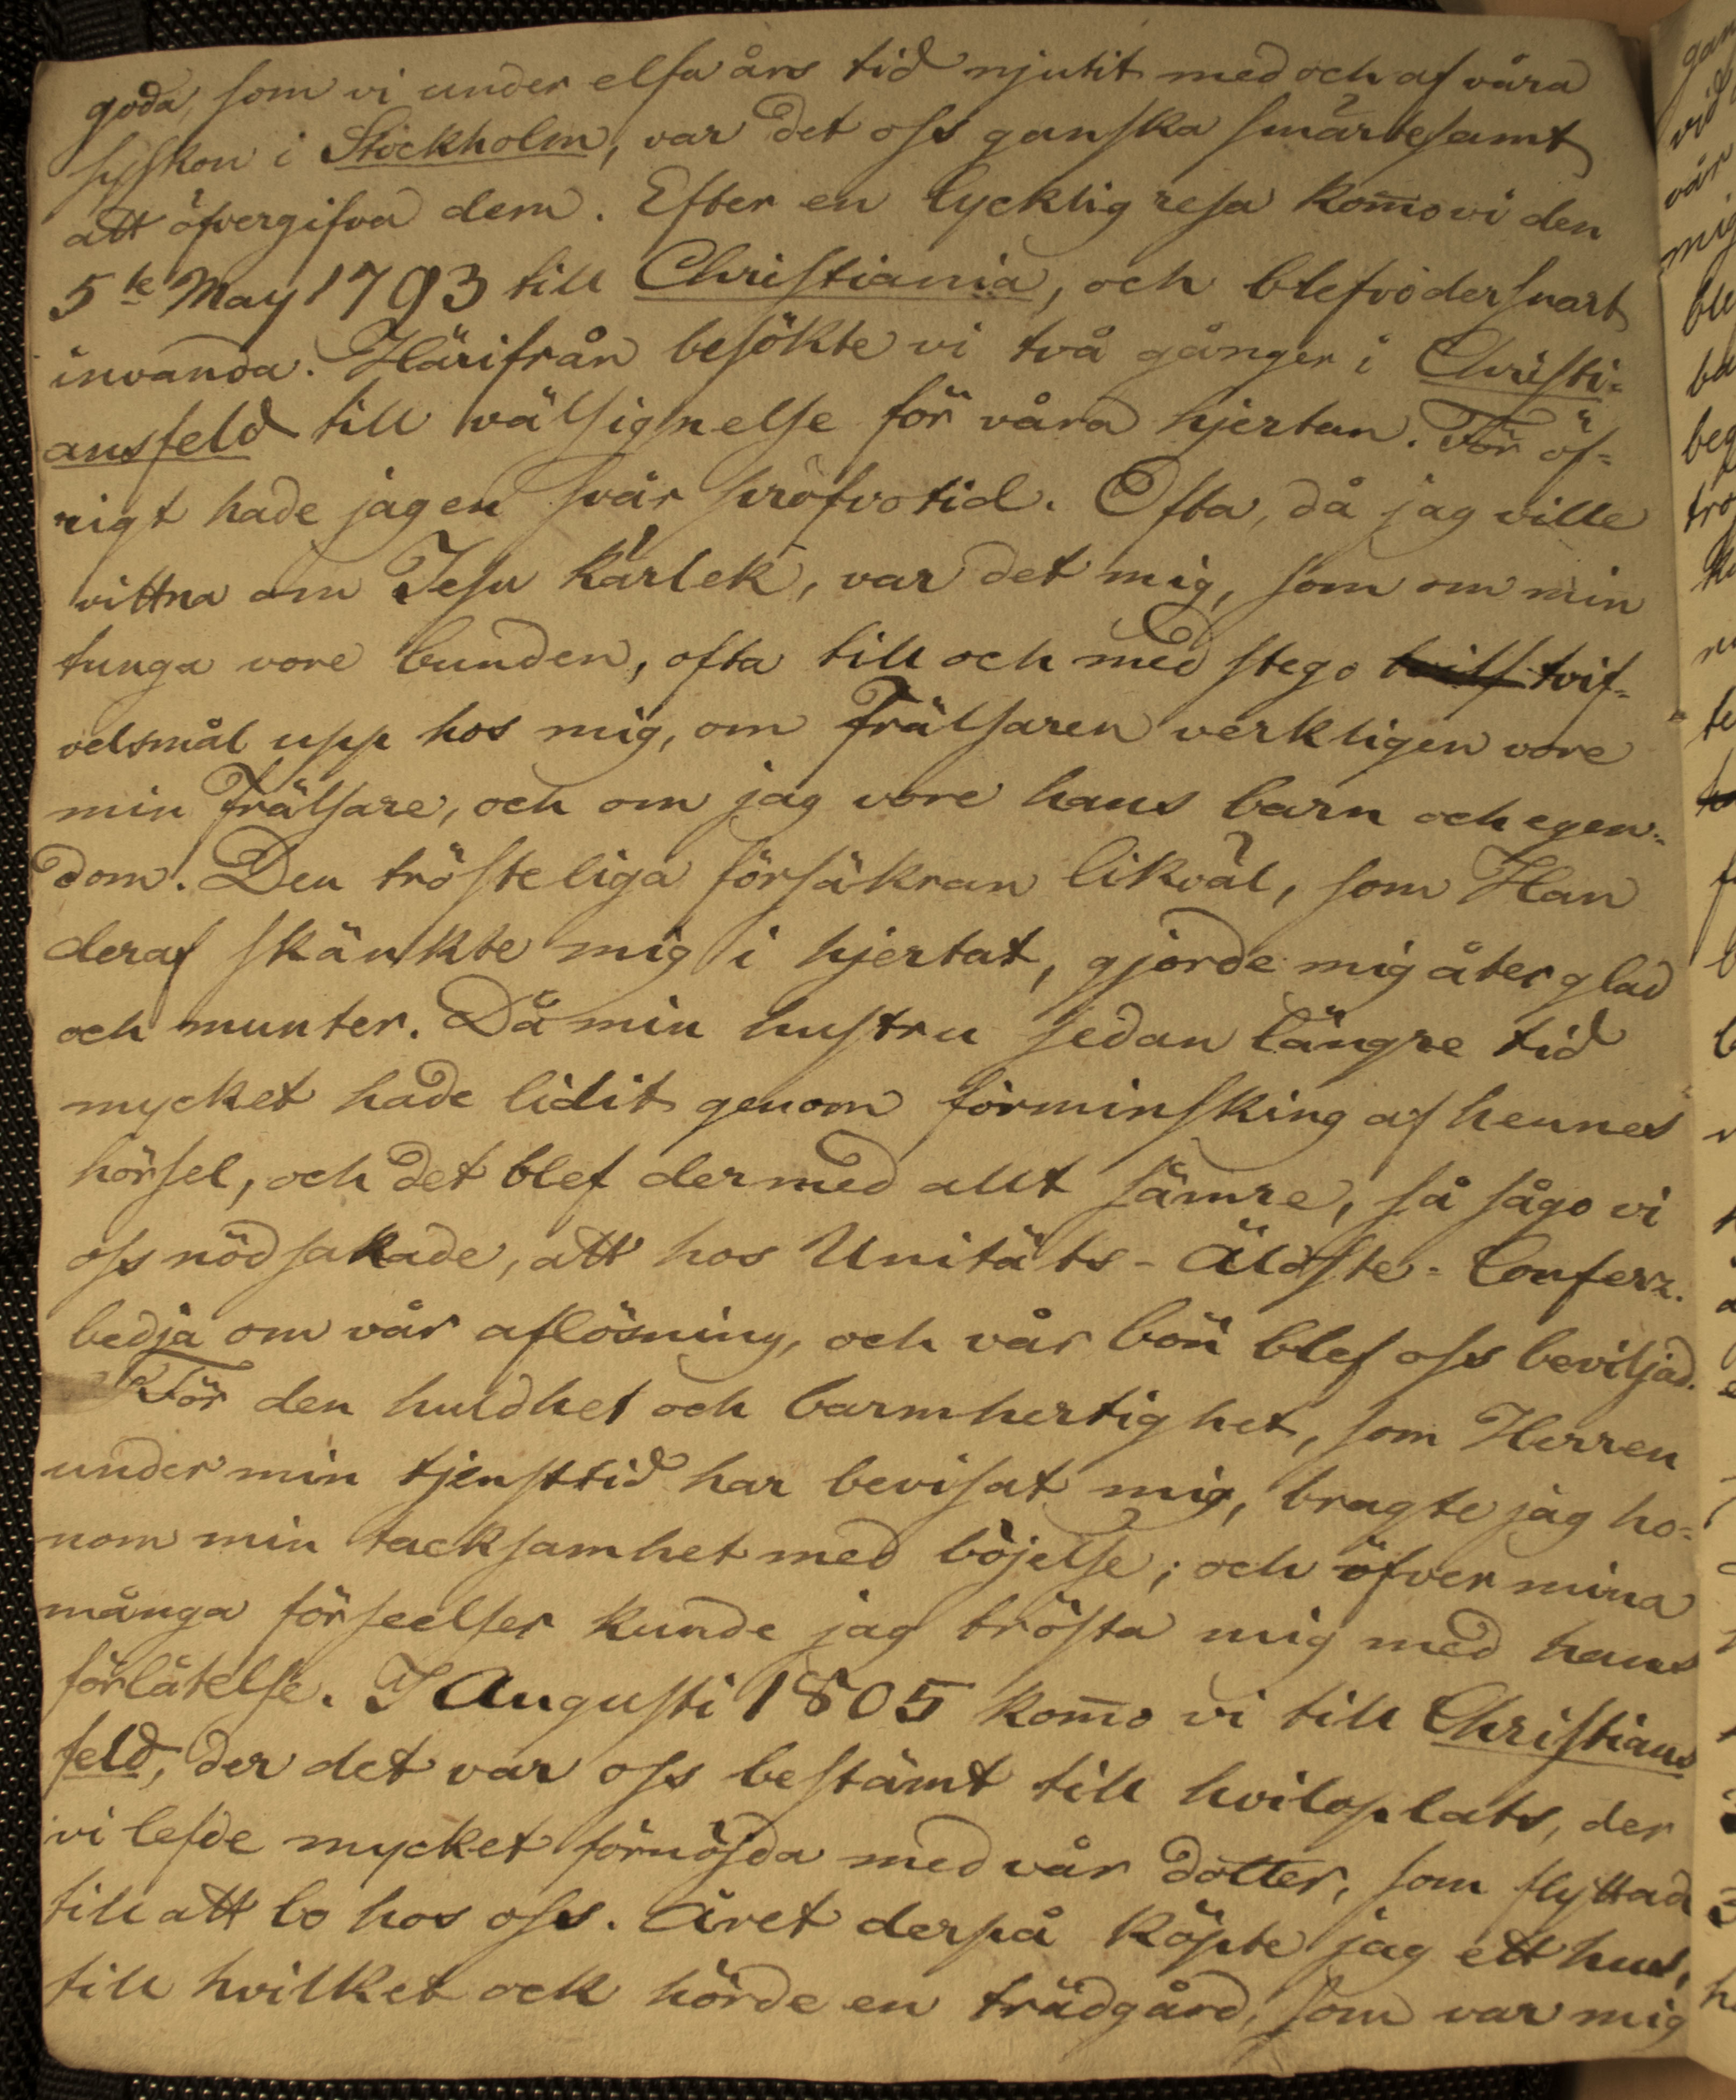 goda, som vi under elfa års tid njutit med och af våra
syskon i Stockholm, var det oss ganska smärtesamt
att öfvergifva dem. Efter en lycklig resa kom̄o vi den
5te May 1793 till Christiania, och blefvo der snart
invanda. Härifrån besökte vi två gånger i Christi-
ansfeld till välsignelse för våra hjertan. För öf-
rigt hade jag en svår pröfvotid. Ofta, då jag ville
vittna om Jesu kärlek, var det mig, som om min
tunga vore bunden, ofta till och med stego tvif-
velsmål upp hos mig, om Frälsaren verkligen vore
min Frälsare, och om jag vore hans barn och egen-
dom. Den trösteliga försäkran likväl, som Han
deraf skänkte mig i hjertat, gjorde mig åter glad
och munter. Då min hustru sedan längre tid
mycket hade lidit genom förminsking af hennes
hörsel, och det blef dermed allt sämre, så sågo vi
oss nödsakade, att hos Unitäts-Äldste-Conferz.
bedja om vår aflösning, och vår bön blef oss beviljad.
För den huldhet och barmhertighet, som Herren
under min tjensttid har bevisat mig, bragte jag ho-
nom min tacksamhet med böjelse; och öfver mina
många förseelser kunde jag trösta mig med hans
förlåtelse. I Augusti 1805 kom̄o vi till Christians
feld, der det var oss bestämt till hviloplats, der
vi lefde mycket förnöjda med vår dotter, som flyttad
till att bo hos oss. Året derpå köpte jag ett hus,
till hvilket ock hörde en trädgård, som var mig